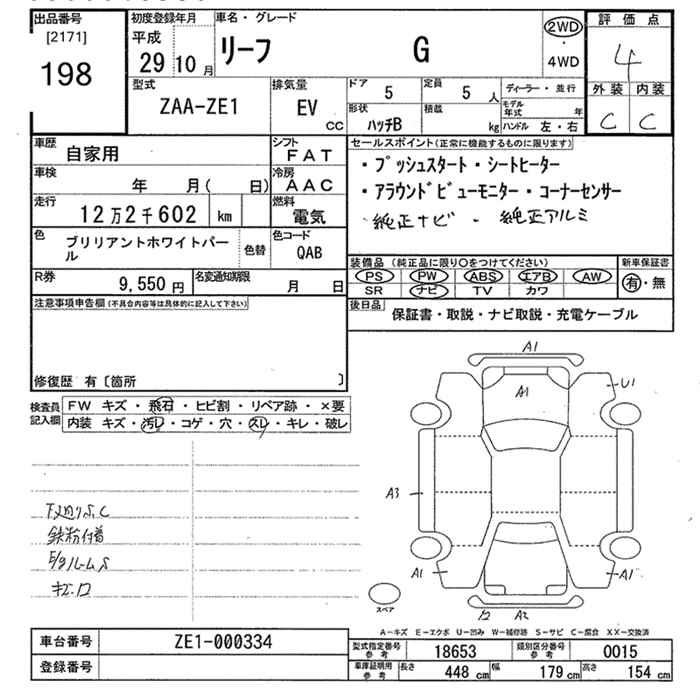 出品番号
[2171]
198
初度登録年月
平成
29 10 月
車名・グレード
リーフ G
2WD
・
4WD
評価点
4
外装 内装
C C
型式
ZAA-ZE1
排気量
EV
cc
ドア 5
定員 5 人
ディーラー・並行
形状 ハッチB
積載 kg
モデル年式 年
ハンドル 左・右
車歴 自家用
シフト FAT
車検 年 月( 日)
冷房 AAC
走行 12万2千602 km
燃料 電気
色 ブリリアントホワイトパール
色替
色コード QAB
R券 9,550円
名変通知期限 月 日
セールスポイント(正常に機能するものに限ります)
・プッシュスタート・シートヒーター
・アラウンドビューモニター・コーナーセンサー
純正ナビ 純正アルミ
装備品(純正品に限り○をつけてください)
新車保証書
PS PW ABS エアB AW
有・無
SR ナビ TV カワ
後日品 保証書・取説・ナビ取説・充電ケーブル
注意事項申告欄(不具合内容等は具体的に記入して下さい)
修復歴 有〔箇所 〕
検査員記入欄
FW キズ・飛石・ヒビ割・リペア跡・×要
内装 キズ・汚レ・コゲ・穴・スレ・キレ・破レ
鉄粉付着
A1
A1
U1
A3
A1
A1
A2
スペア
A-キズ E-エクボ U-凹み W-補修跡 S-サビ C-腐食 XX-交換済
車台番号 ZE1-000334
登録番号
型式指定番号参考 18653
類別区分番号参考 0015
車庫証明用参考 長さ 448 cm 幅 179 cm 高さ 154 cm